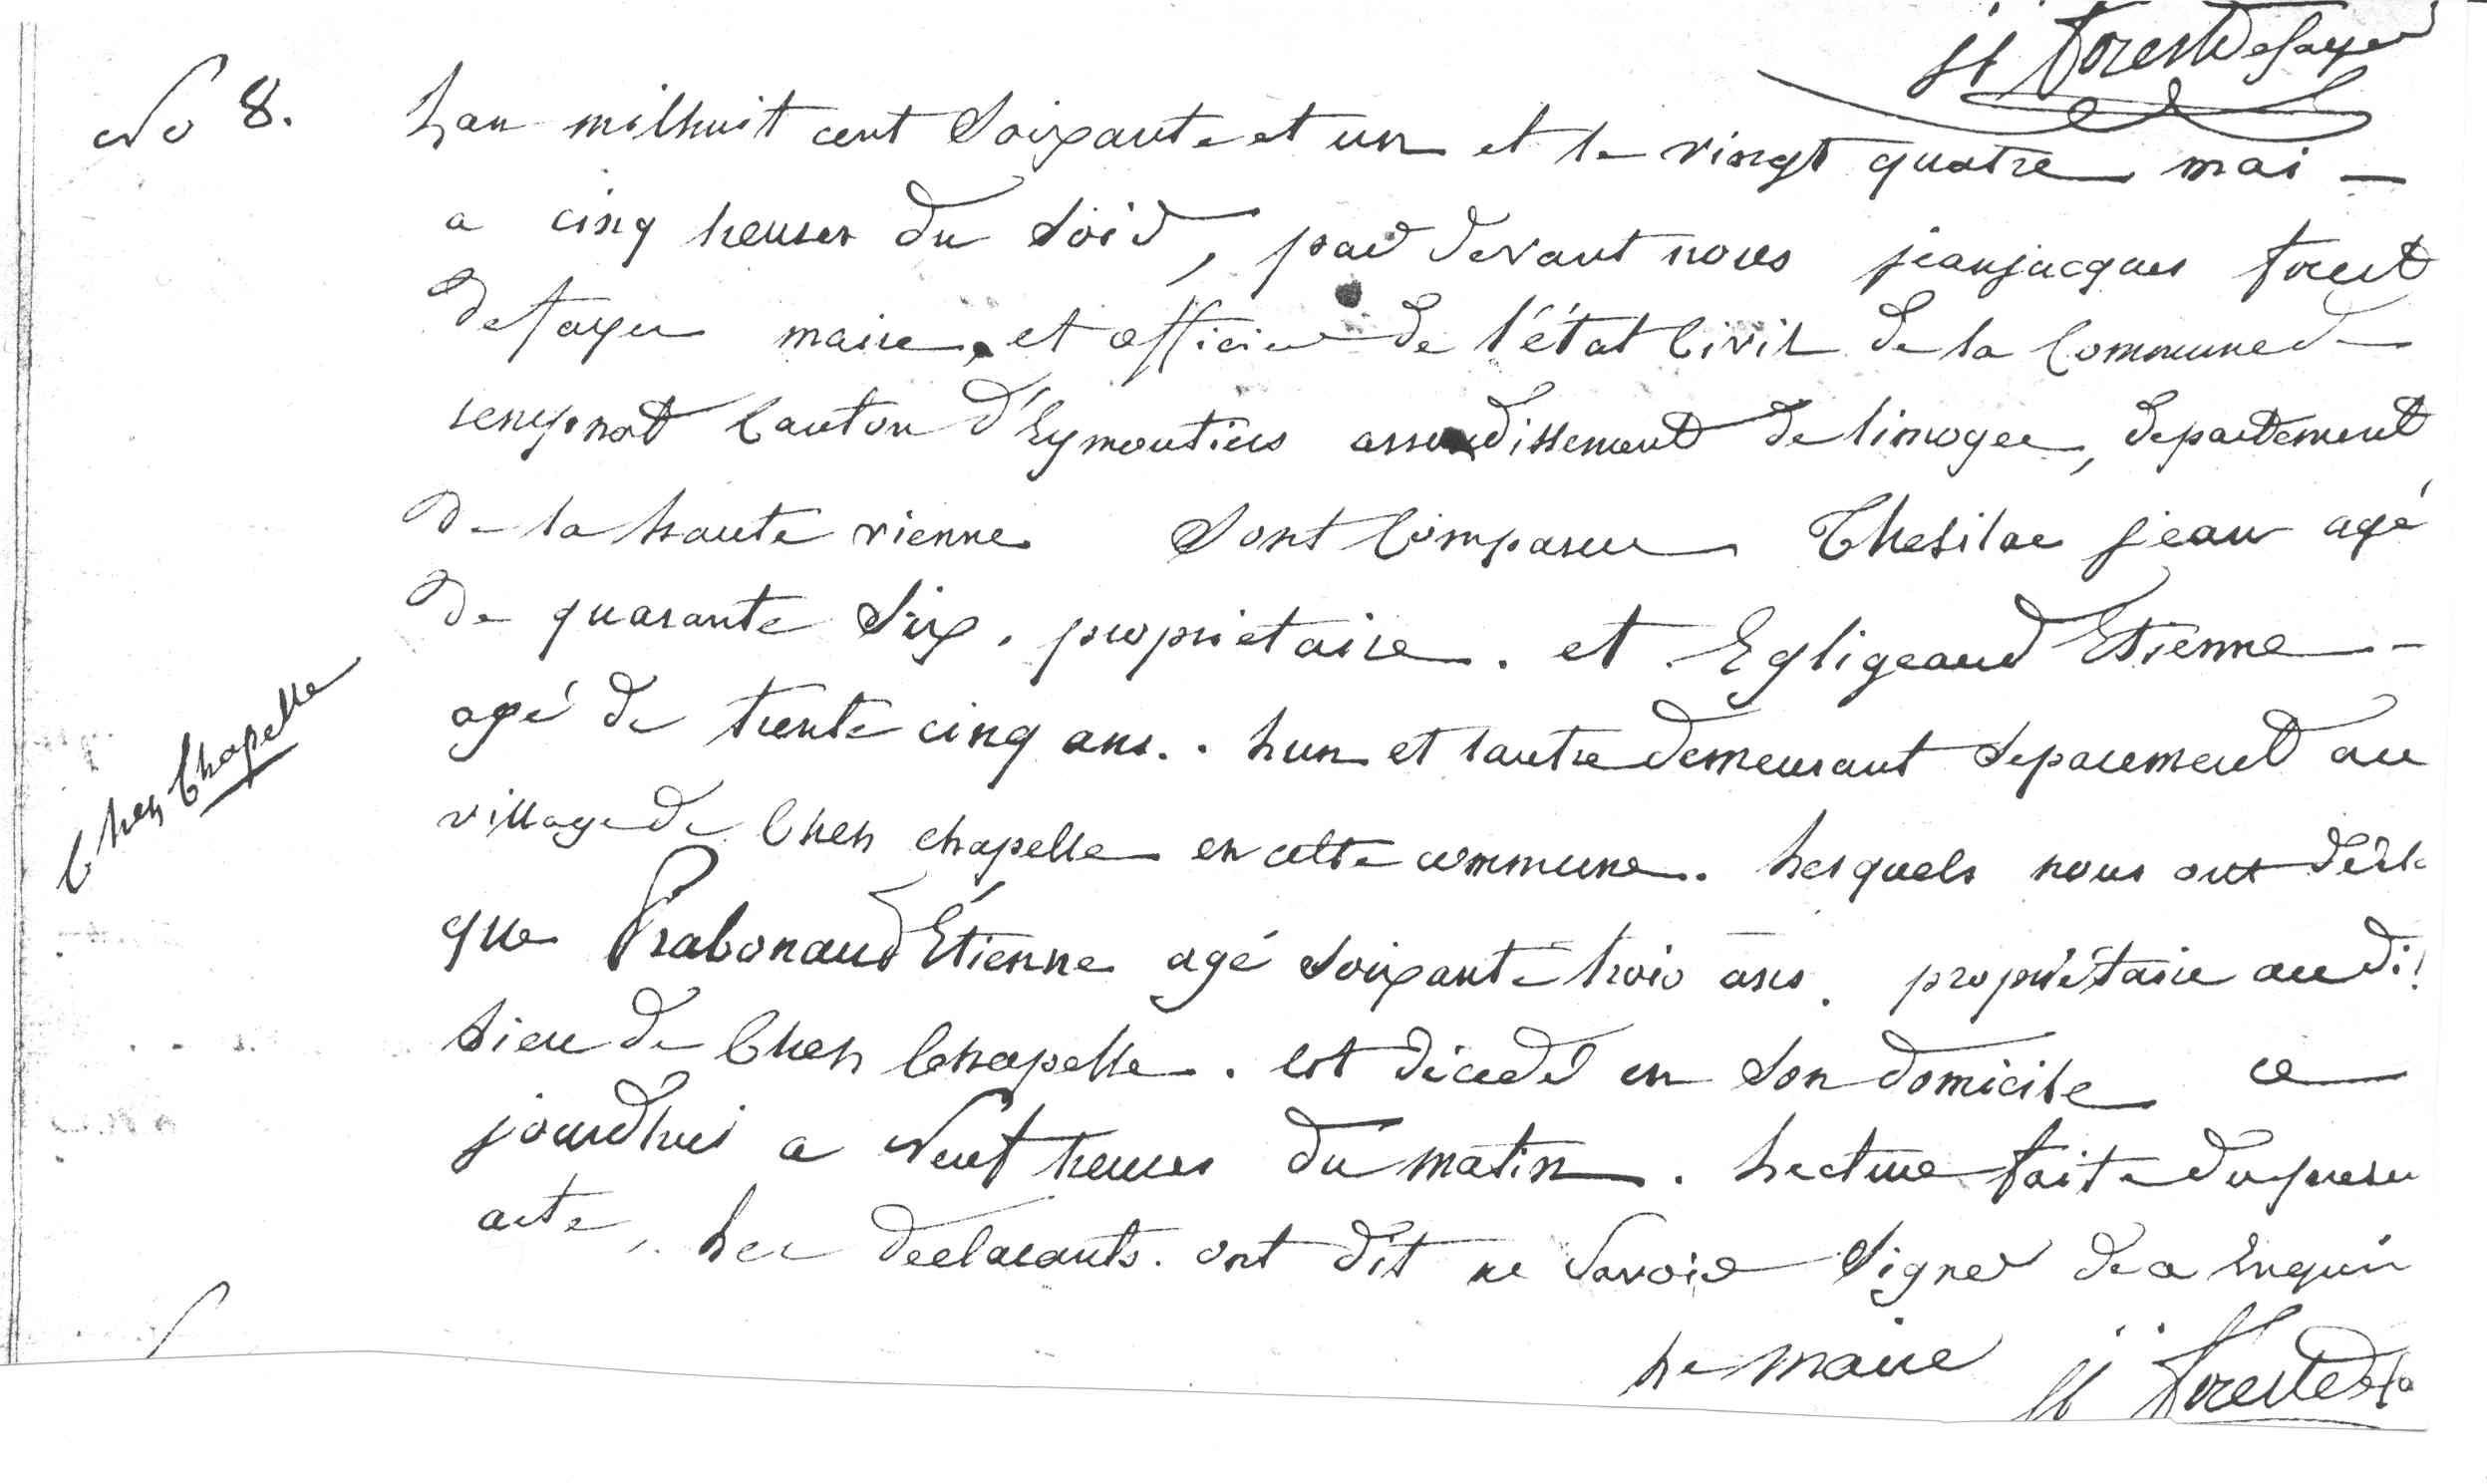 JJ Forest Defayer
No 8.
Lan milhuit cent Soixante et un et le vingt quatre mai —
a cinq heures du Soir, par devant nous jeanjacques forest
defayer maire, et officier de l'état Civil de la Commune de
Canton d'Eymoutiers arrondissement de limoges, departement
de la haute vienne Sont Comparus Thesilac jean agé
de quarante Six. propriétaire. et Egligeaud Etienne -
agé de trente cinq ans.. Lun et lautre demeurant Separement au
village de Chez chapelle en cette commune. Lesquels nous ont décla
Chez Chapelle
que Prabonaud Étienne agé Soixante trois ans. propriétaire audit
Lieu de Chez Chapelle. est décedé en Son domicile ce
jourdhui a Neuf heures du matin. Lecture faite du presen
acte, Les declarants. ont dit ne Savoir Signer de a enquis
Le maire JJ Foreste